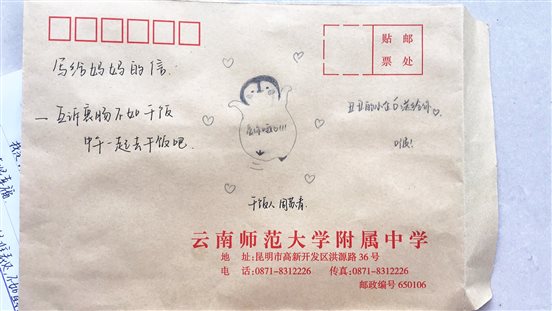 贴 邮
票 处
写给妈妈的信.
互诉衷肠不如干饭
中午一起去干饭吧.
爱你哦!!!
丑丑的小企鹅送给你♡.
干饭人 周苏青
云南师范大学附属中学
地 址:昆明市高新开发区洪源路 36 号
电 话:0871-8312226 传真:0871-8312226
邮政编号 650106